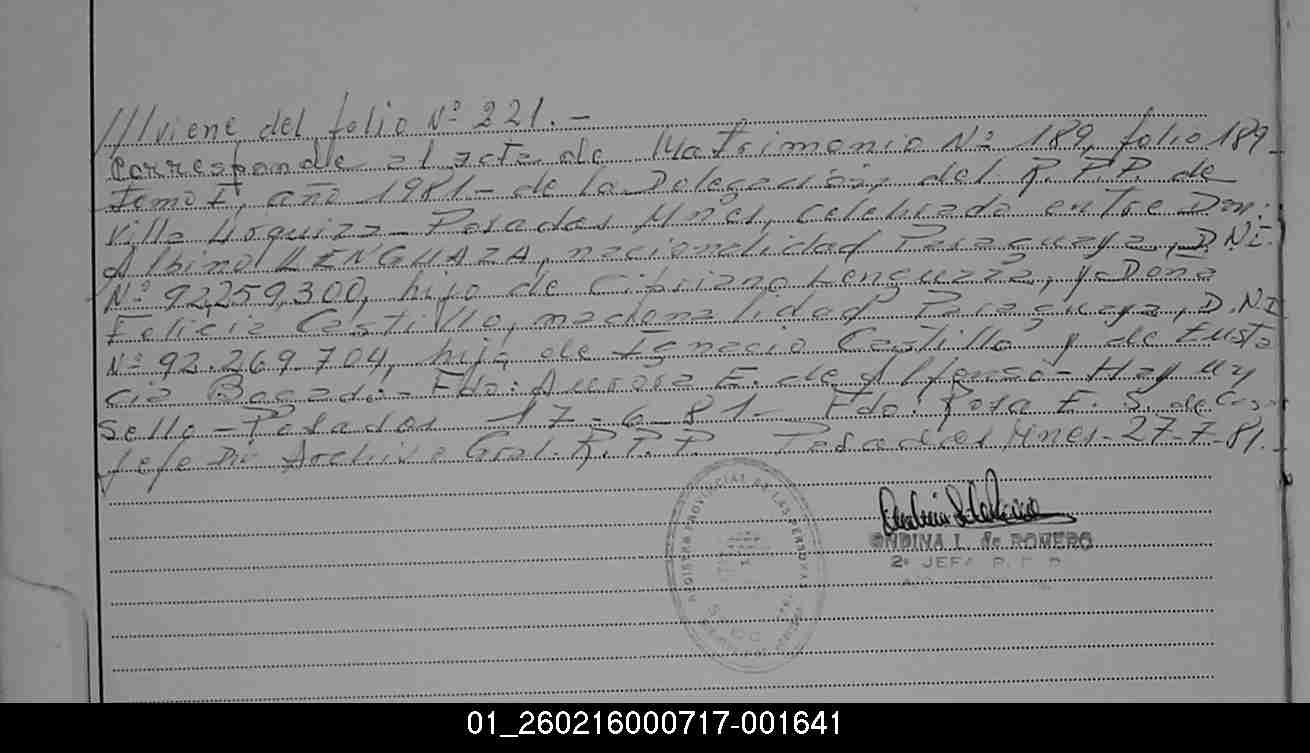 ///viene del folio Nº 221.-
Corresponde al acta de Matrimonio Nº 189, folio 189
Tomo I, año 1981- de la Delegación, del R.P.P. de
Villa Urquiza- Posadas, Mnes, celebrado entre Don:
Albino LENGUAZA, nacionalidad Paraguaya, D.N.I.
Nº 92,259,300, hijo de Cipriano Lenguazza, y Dona
Felicia Castillo, naciona lidad Paraguaya, D.N.I
Nº 92.269.704, hija de Ignacio Castillo y de Eusta
cia Bogado- Fdo: Aurora E. de Alfonso- Hay un
sello - Posadas 17-6-81- Fdo. Rosa E. S. de
Jefe Div Archivo Gral. R.P.P. Posadas, Mnes- 27-7-81.
REGISTRO PROVINCIAL DE LAS PERSONAS
ONDINA L. de ROMERO
2º JEFA R. P. P.
01_260216000717-001641